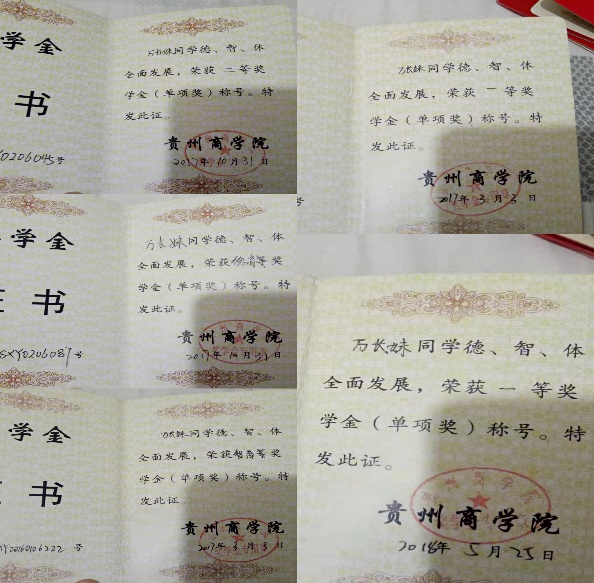 学金
书
Y0206045号
万长妹同学德、智、体
全面发展，荣获 二等奖
学金（单项奖）称号。特
发此证。
贵州商学院
2017年 10月 31 日
万长妹同学德、智、体
全面发展，荣获 一等奖
学金（单项奖）称号。特
发此证。
贵州商学院
2017年 3月 3日
学金
证书
SXY0206087号
万长妹同学德、智、体
全面发展，荣获德育等奖
学金（单项奖）称号。特
发此证。
贵州商学院
2017年 10月 31日
学金
证书
XY20160106222号
万长妹同学德、智、体
全面发展，荣获智育等奖
学金（单项奖）称号。特
发此证。
贵州商学院
2017年 3月 3日
万长妹同学德、智、体
全面发展，荣获 一等奖
学金（单项奖）称号。特
发此证。
贵州商学院
2018年 5月25日